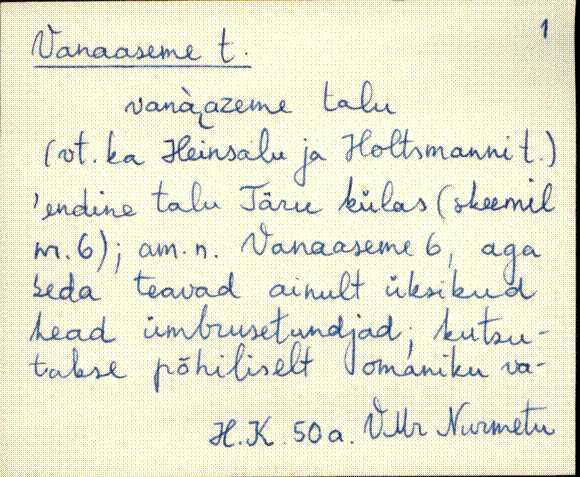 1
Vanaaseme t.
vanàʐazeme talu
(vt. ka Heinsalu ja Holtsmanni t.)
'endine talu Järu külas (skeemil
nr. 6); am. n. Vanaaseme 6, aga
seda teavad ainult üksikud
head ümbrusetundjad; kutsu-
takse põhiliselt omaniku va-
H.K. 50 a. VMr Nurmetu